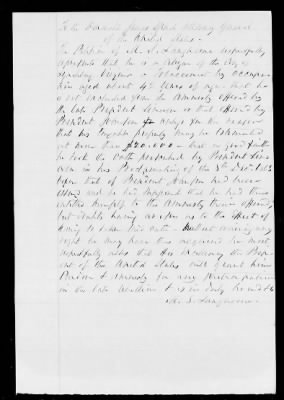 To the Honorable James Speed Attorney General
of the United States.
The Petition of M. S. Langhorne respectfully
represents that he is a citizen of the City of
Lynchburg Virginia a Tobacconist by occupa-
tion aged about 42 years of age. that he
is not excluded from the Amnesty offered by
the late President Lincoln or that offered by
President Johnson except for the reason
that his taxable property may be estimated
at more than $20.000 - that in good faith
he took the oath prescribed by President Lin-
coln in his Proclamation of the 8th Dec 1863
before that of President Johnson had been
issued and he had supposed that he had thus
entitled himself to the Amnesty therein offered,
but doubts having as to the effect of
having so taken said oath - without waiving any
right he may have thus acquired he most
respectfully asks that His Excellency the Presi-
dent of the United States will grant him
Pardon & Amnesty for any participation
in the late rebellion & as in duty bound &c
M. S. Langhorne